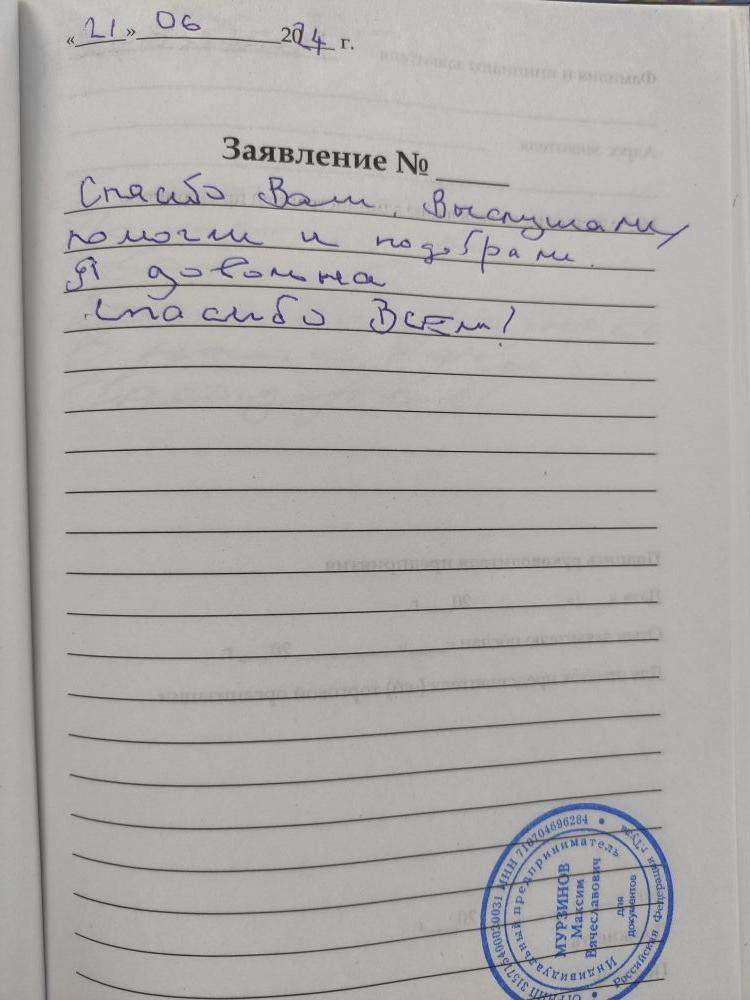 « 21 » 06 2024 г.
Заявление №
Спасибо Вам. Выслушали,
помогли и подобрали.
Я довольна
Спасибо Всем!
Индивидуальный предприниматель
МУРЗИНОВ
Максим
Вячеславович
для
документов
Российская Федерация г.Тула
ИНН 710704696284